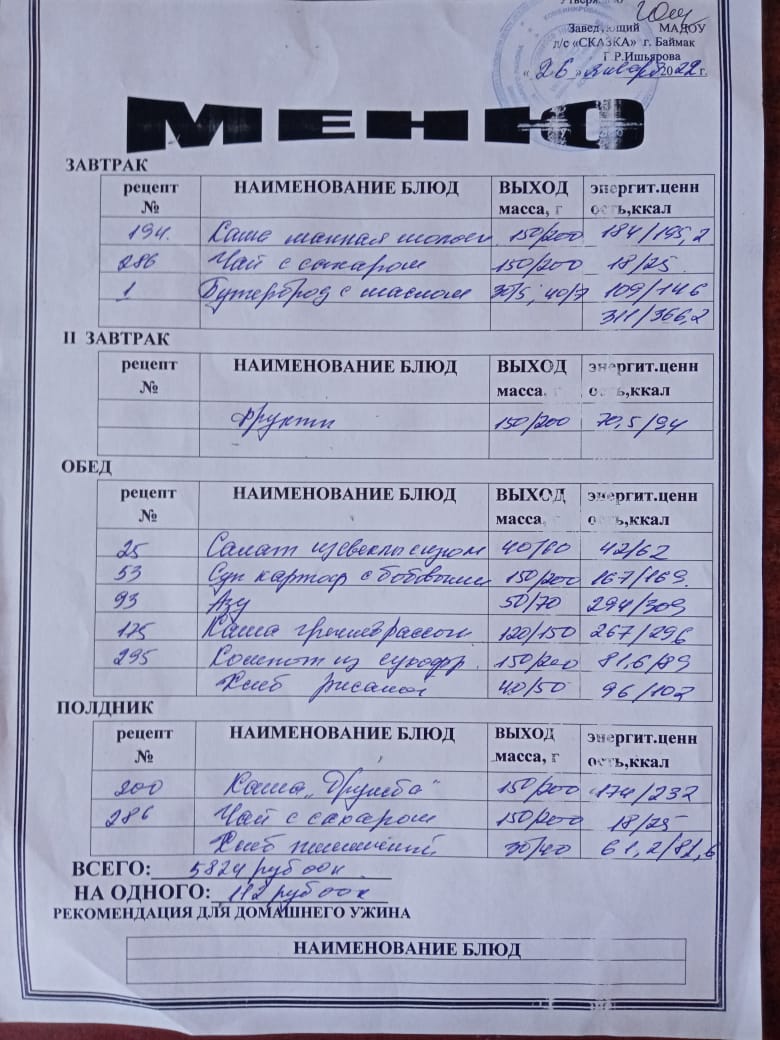 Утверждаю
Заведующий МАДОУ
д/с «СКАЗКА» г. Баймак
Г.Р.Ишьярова
« 26 » января 2022 г.
МЕНЮ
ЗАВТРАК
рецепт № НАИМЕНОВАНИЕ БЛЮД ВЫХОД масса, г энергит.ценн ость,ккал
194. Каша манная молочн. 150/200 184/195,2
286 Чай с сахаром 150/200 18/25
1 Бутерброд с маслом 30/5; 40/7 109/146
311/366,2
II ЗАВТРАК
рецепт № НАИМЕНОВАНИЕ БЛЮД ВЫХОД масса, г энергит.ценн ость,ккал
Фрукты 150/200 70,5/94
ОБЕД
рецепт № НАИМЕНОВАНИЕ БЛЮД ВЫХОД масса, г энергит.ценн ость,ккал
25 Салат из свеклы с изюмом 40/60 42/62
53 Суп картоф с бобовыми 150/200 167/169.
93 Азу 50/70 294/309
175 Каша гречнев рассып 120/150 267/296
295 Компот из сухофр. 150/200 81,6/89
Хлеб ржаной 40/50 96/102
ПОЛДНИК
рецепт № НАИМЕНОВАНИЕ БЛЮД ВЫХОД масса, г энергит.ценн ость,ккал
200 Каша „Дружба“ 150/200 174/232
286 Чай с сахаром 150/200 18/25
Хлеб пшеничный 30/40 61,2/81,6
ВСЕГО: 5824 руб 00 к
НА ОДНОГО: 112 руб 00 к
РЕКОМЕНДАЦИЯ ДЛЯ ДОМАШНЕГО УЖИНА
НАИМЕНОВАНИЕ БЛЮД